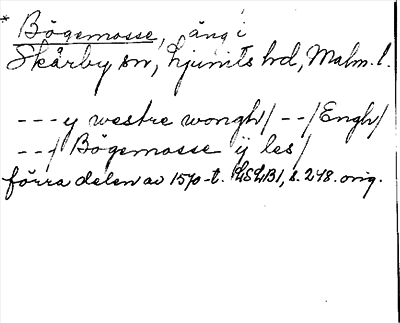 * Bögemosse, äng i
Skårby sn, Ljunits hd, Malm. l.
--- y westre wongh/ --/Engh/
--/ Bögemosse ÿ les/
förra delen av 1570-t. LSLB1, s. 248. orig.